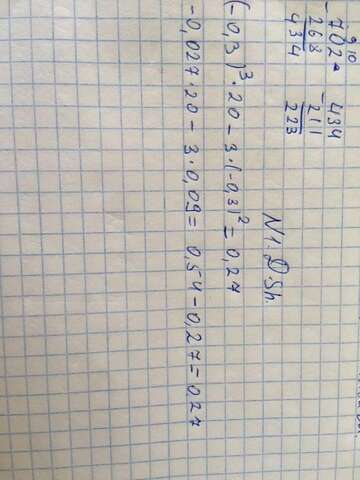 9 10
-702 -434
268 211
434 223
N1. D. Sh.
(-0,3)³·20-3·(-0,3)²=0,27
-0,027·20-3·0,09= 0,54-0,27=0,27